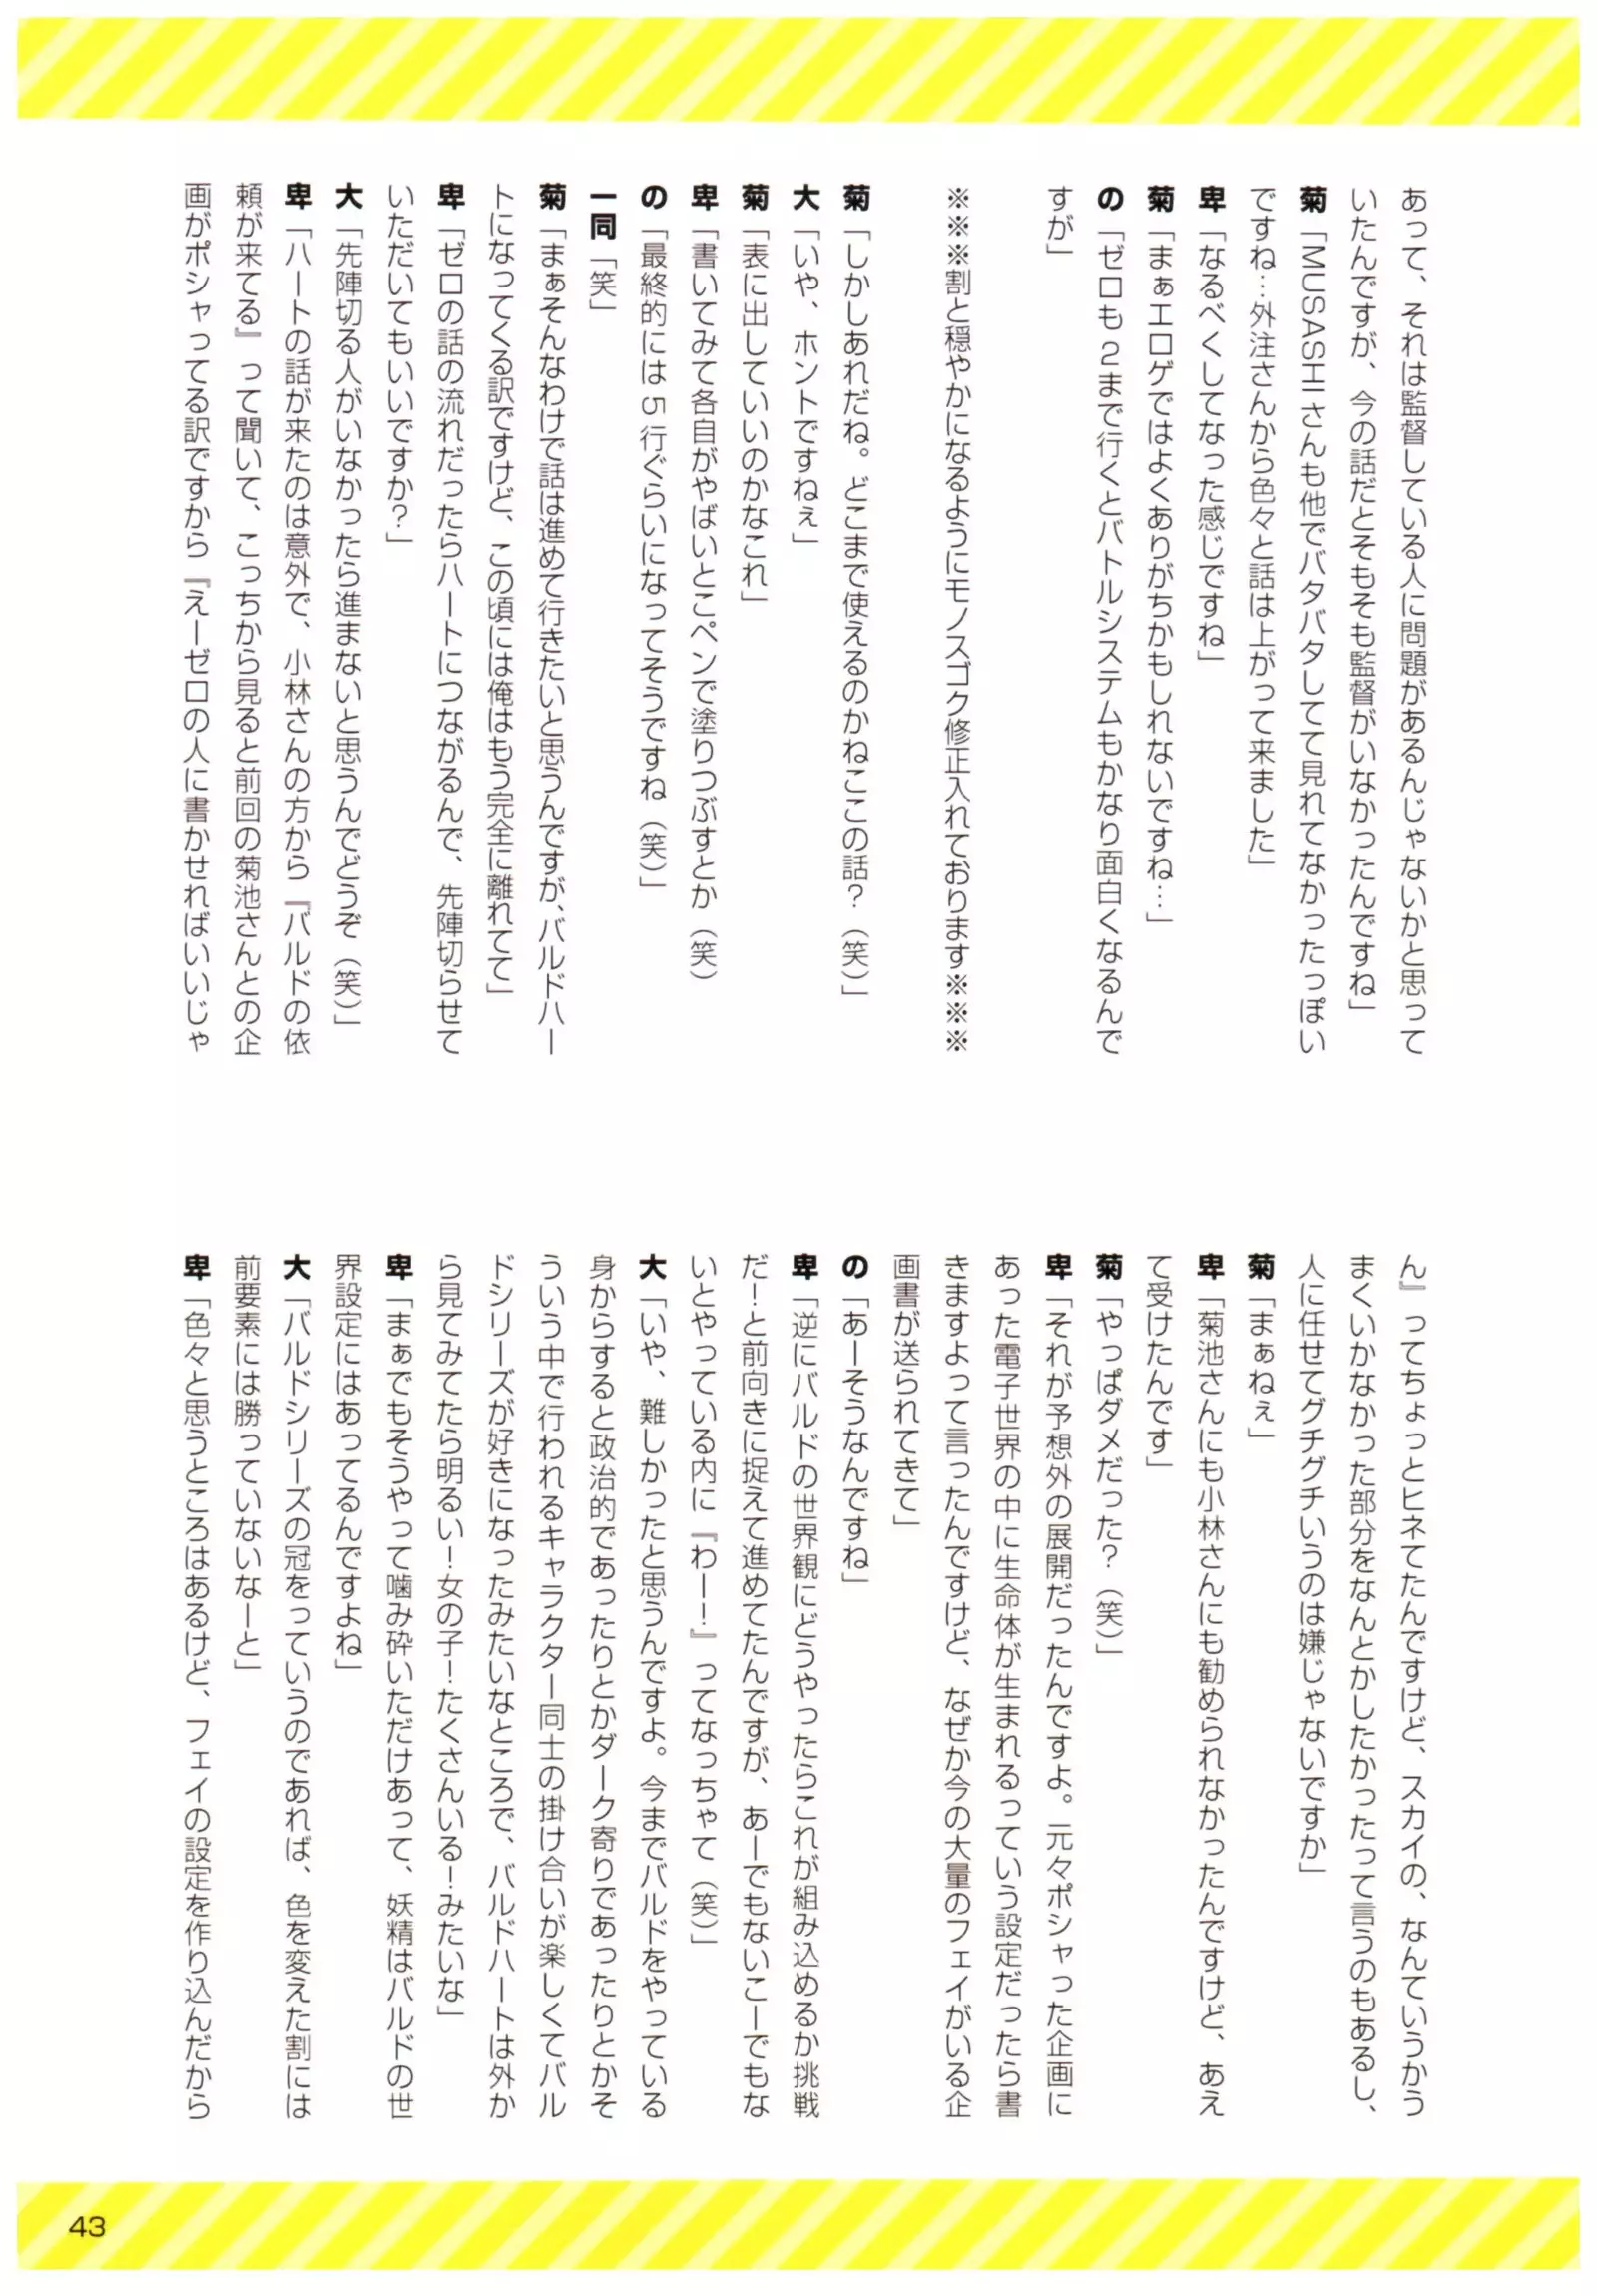 あって、それは監督している人に問題があるんじゃないかと思って
いたんですが、今の話だとそもそも監督がいなかったんですね」
菊「MUSASHI さんも他でバタバタしてて見れてなかったっぽい
ですね…外注さんから色々と話は上がって来ました」
卑「なるべくしてなった感じですね」
菊「まぁエロゲではよくありがちかもしれないですね…」
の「ゼロも 2 まで行くとバトルシステムもかなり面白くなるんで
すが」
※※※割と穏やかになるようにモノスゴク修正入れております※※※
菊「しかしあれだね。どこまで使えるのかねここの話？（笑）」
大「いや、ホントですねぇ」
菊「表に出していいのかなこれ」
卑「書いてみて各自がやばいとこペンで塗りつぶすとか（笑）
の「最終的には 5 行ぐらいになってそうですね（笑）」
一同「笑」
菊「まぁそんなわけで話は進めて行きたいと思うんですが、バルドハー
トになってくる訳ですけど、この頃には俺はもう完全に離れてて」
卑「ゼロの話の流れだったらハートにつながるんで、先陣切らせて
いただいてもいいですか？」
大「先陣切る人がいなかったら進まないと思うんでどうぞ（笑）」
卑「ハートの話が来たのは意外で、小林さんの方から『バルドの依
頼が来てる』って聞いて、こっちから見ると前回の菊池さんとの企
画がポシャってる訳ですから『えーゼロの人に書かせればいいじゃ
ん』ってちょっとヒネてたんですけど、スカイの、なんていうかう
まくいかなかった部分をなんとかしたかったって言うのもあるし、
人に任せてグチグチいうのは嫌じゃないですか」
菊「まぁねぇ」
卑「菊池さんにも小林さんにも勧められなかったんですけど、あえ
て受けたんです」
菊「やっぱダメだった？（笑）」
卑「それが予想外の展開だったんですよ。元々ポシャった企画に
あった電子世界の中に生命体が生まれるっていう設定だったら書
きますよって言ったんですけど、なぜか今の大量のフェイがいる企
画書が送られてきて」
の「あーそうなんですね」
卑「逆にバルドの世界観にどうやったらこれが組み込めるか挑戦
だ！と前向きに捉えて進めてたんですが、あーでもないこーでもな
いとやっている内に『わー！』ってなっちゃて（笑）」
大「いや、難しかったと思うんですよ。今までバルドをやっている
身からすると政治的であったりとかダーク寄りであったりとかそ
ういう中で行われるキャラクター同士の掛け合いが楽しくてバル
ドシリーズが好きになったみたいなところで、バルドハートは外か
ら見てみてたら明るい！女の子！たくさんいる！みたいな」
卑「まぁでもそうやって噛み砕いただけあって、妖精はバルドの世
界設定にはあってるんですよね」
大「バルドシリーズの冠をっていうのであれば、色を変えた割には
前要素には勝っていないなーと」
卑「色々と思うところはあるけど、フェイの設定を作り込んだから
43